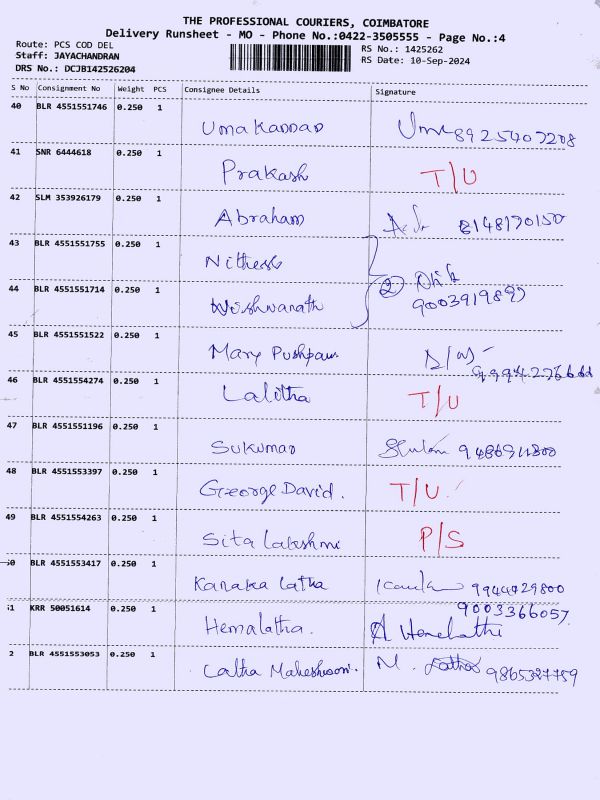 THE PROFESSIONAL COURIERS, COIMBATORE
Delivery Runsheet - MO - Phone No.:0422-3505555 - Page No.:4
Route: PCS COD DEL
Staff: JAYACHANDRAN
DRS No.: DCJB142526204
RS No.: 1425262
RS Date: 10-Sep-2024
S No Consignment No Weight PCS Consignee Details Signature
40 BLR 4551551746 0.250 1 Uma Kannan 8925407208
41 SNR 6444618 0.250 1 Prakash T/U
42 SLM 353926179 0.250 1 Abraham 8148170150
43 BLR 4551551755 0.250 1 Nithesh
44 BLR 4551551714 0.250 1 Wishwanath 2 9003919897
45 BLR 4551551522 0.250 1 Mary Pushpam
46 BLR 4551554274 0.250 1 Lalitha T/U
47 BLR 4551551196 0.250 1 Sukumar
48 BLR 4551553397 0.250 1 George David. T/U
49 BLR 4551554263 0.250 1 Sita Lakshmi P/S
50 BLR 4551553417 0.250 1 Kanaka Latha 9944929800
51 KRR 50051614 0.250 1 Hemalatha. 9003366057
2 BLR 4551553053 0.250 1 Latha Maheshwari. M. Latha 9865327759